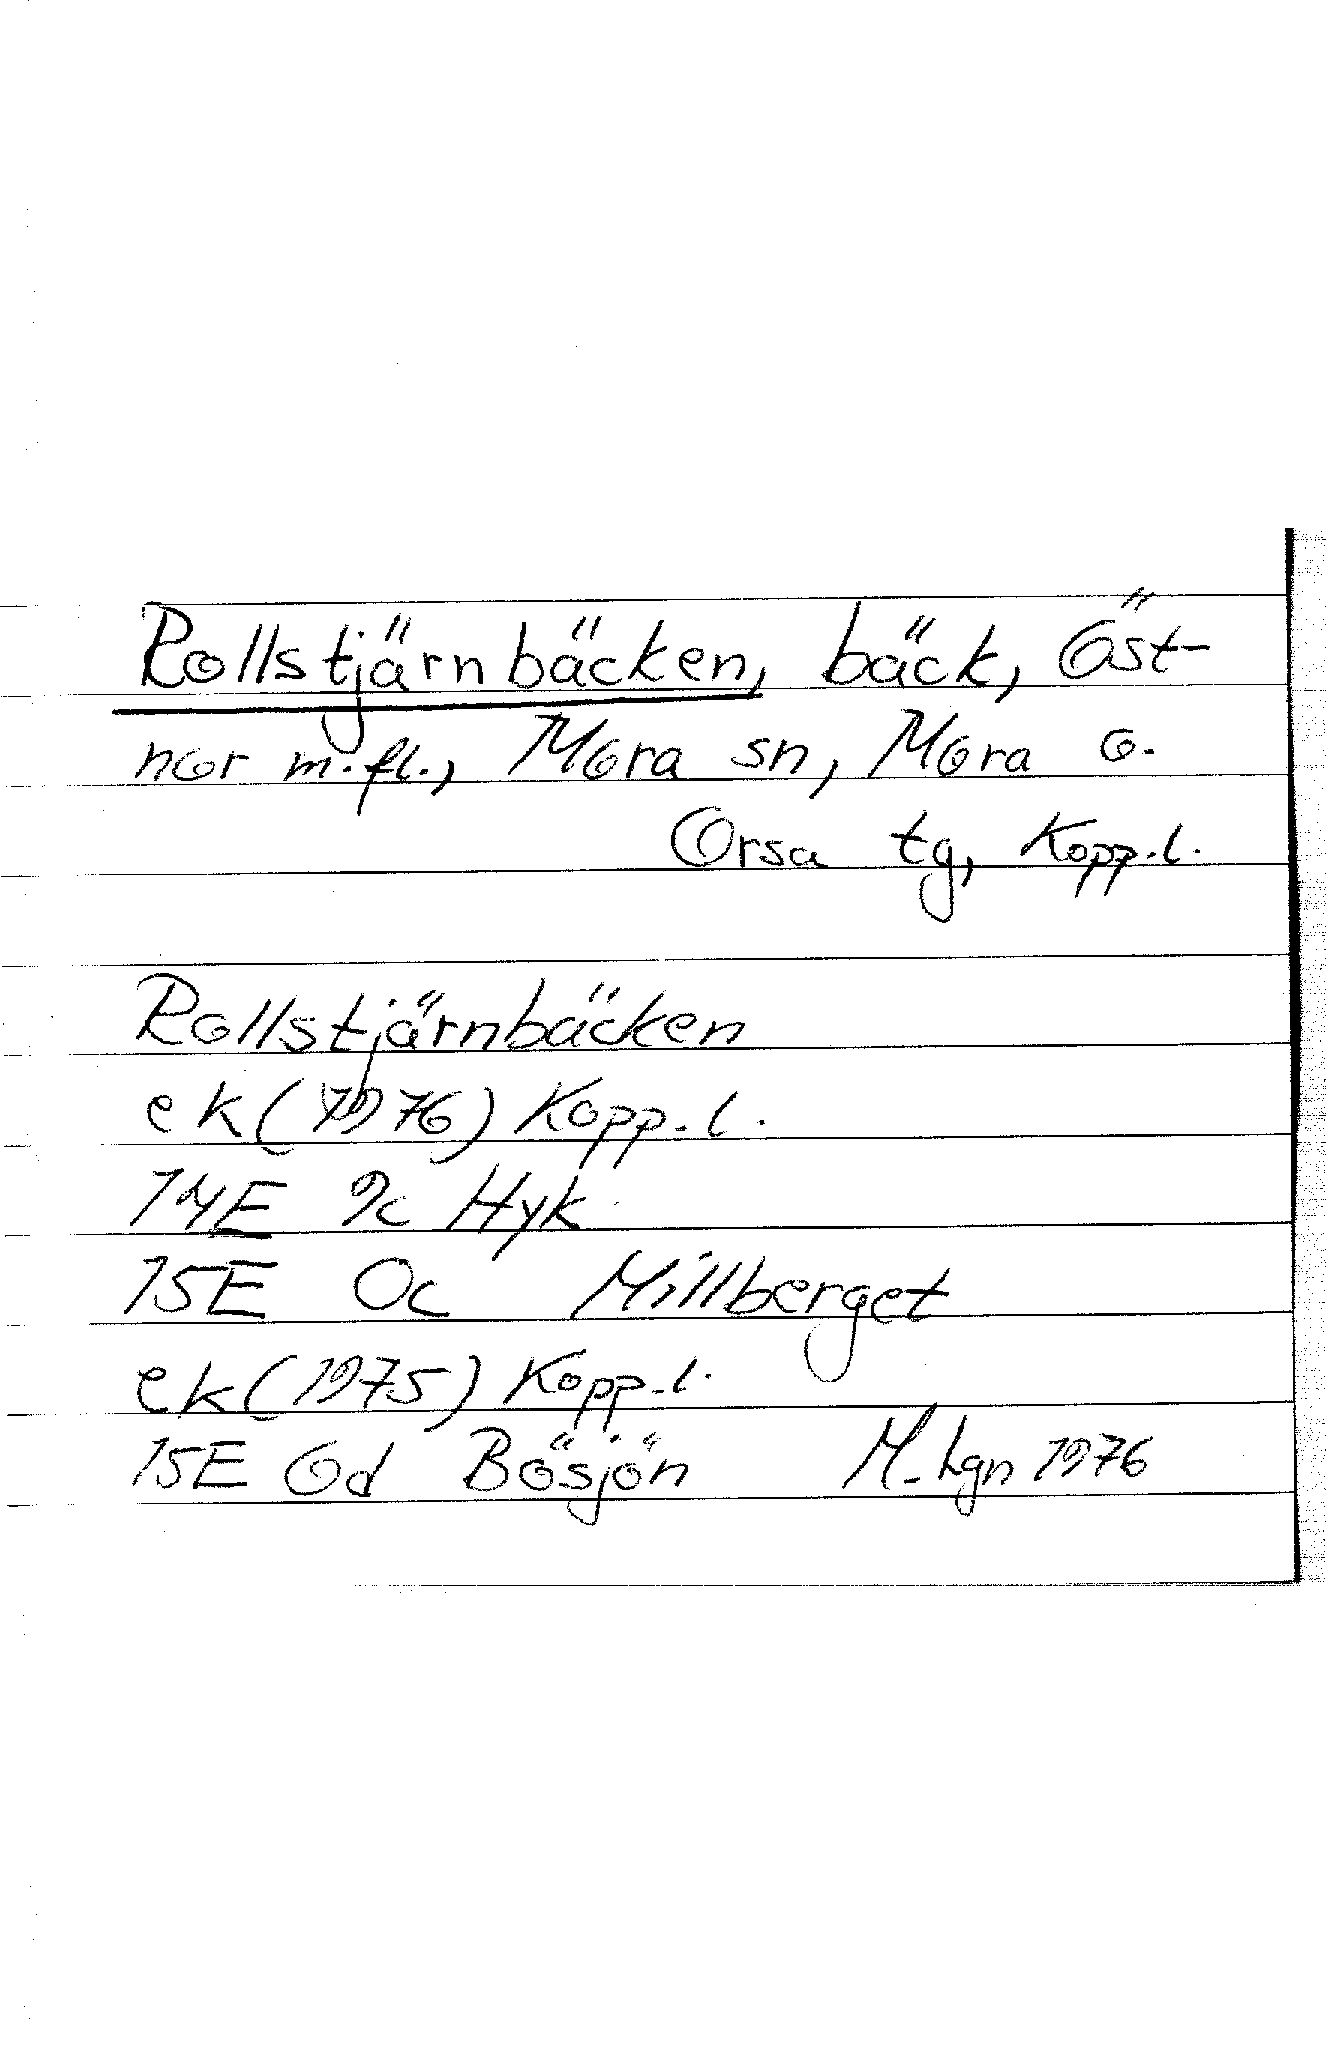 Rollstjärnbäcken, bäck, Öst-
nor m.fl., Mora sn, Mora o.
Orsa tg, Kopp.l.
Rollstjärnbäcken
ek (1976) Kopp.l.
14E 9c Hyk
15E 0c Millberget
ek (1975) Kopp.l.
15E 0d Bösjön M.Lgn 1976